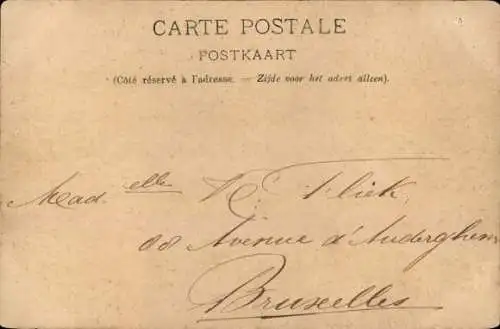 CARTE POSTALE
POSTKAART
(Côté réservé à l'adresse. — Zijde voor het adres alleen).
Mad elle
Avenue d'Auderghem
Bruxelles